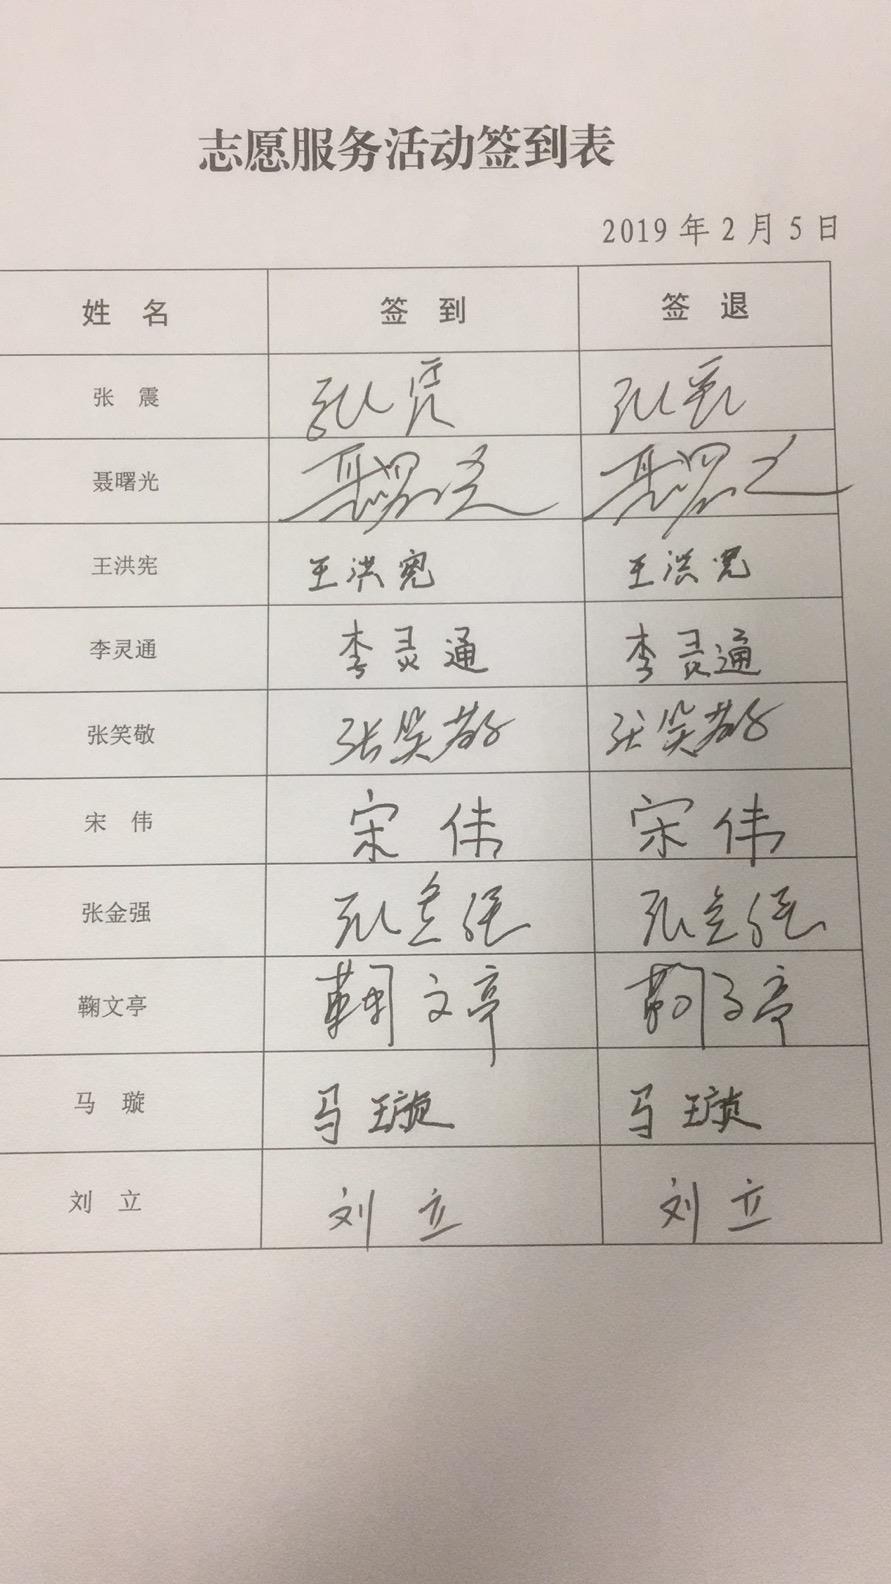 志愿服务活动签到表
2019 年 2 月 5 日
姓 名 签 到 签 退
张 震 张震 张震
聂曙光 聂曙光 聂曙光
王洪宪 王洪宪 王洪宪
李灵通 李灵通 李灵通
张笑敬 张笑敬 张笑敬
宋 伟 宋 伟 宋 伟
张金强 张金强 张金强
鞠文亭 鞠文亭 鞠文亭
马 璇 马 璇 马 璇
刘 立 刘 立 刘 立